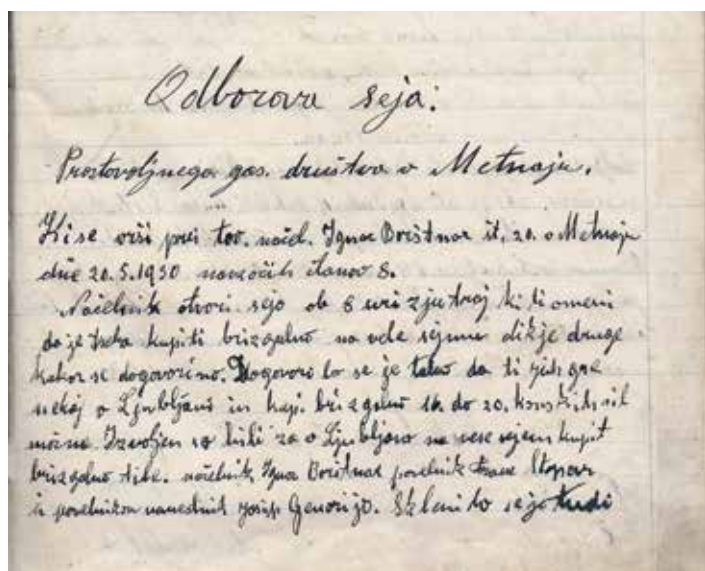 Odborova seja:
Prostovoljnega gas. društva v Metnaju.
Ki se vrši pri tov. načel. Ignac Borštnar št. 20. v Metnaju
dne 20.5.1930 navzočih članov 8.
Načelnik otvori sejo ob 8 uri zjutraj ki ti omeni
da je treba kupiti brizgalno na vele sejmu ali kje druge
kakor se dogovorimo. Dogovoro lo se je tako da ti jih gre
nekaj v Ljubljano in kupi brizgalno 16. do 20. konskih sil
močna. Izvoljen so bili za v Ljubljano na vele sejem kupit
brizgalno načelnik Ignac Borštnar poveljnik Franc
in namestnik Josip Genorijo. Sklenilo se je tudi